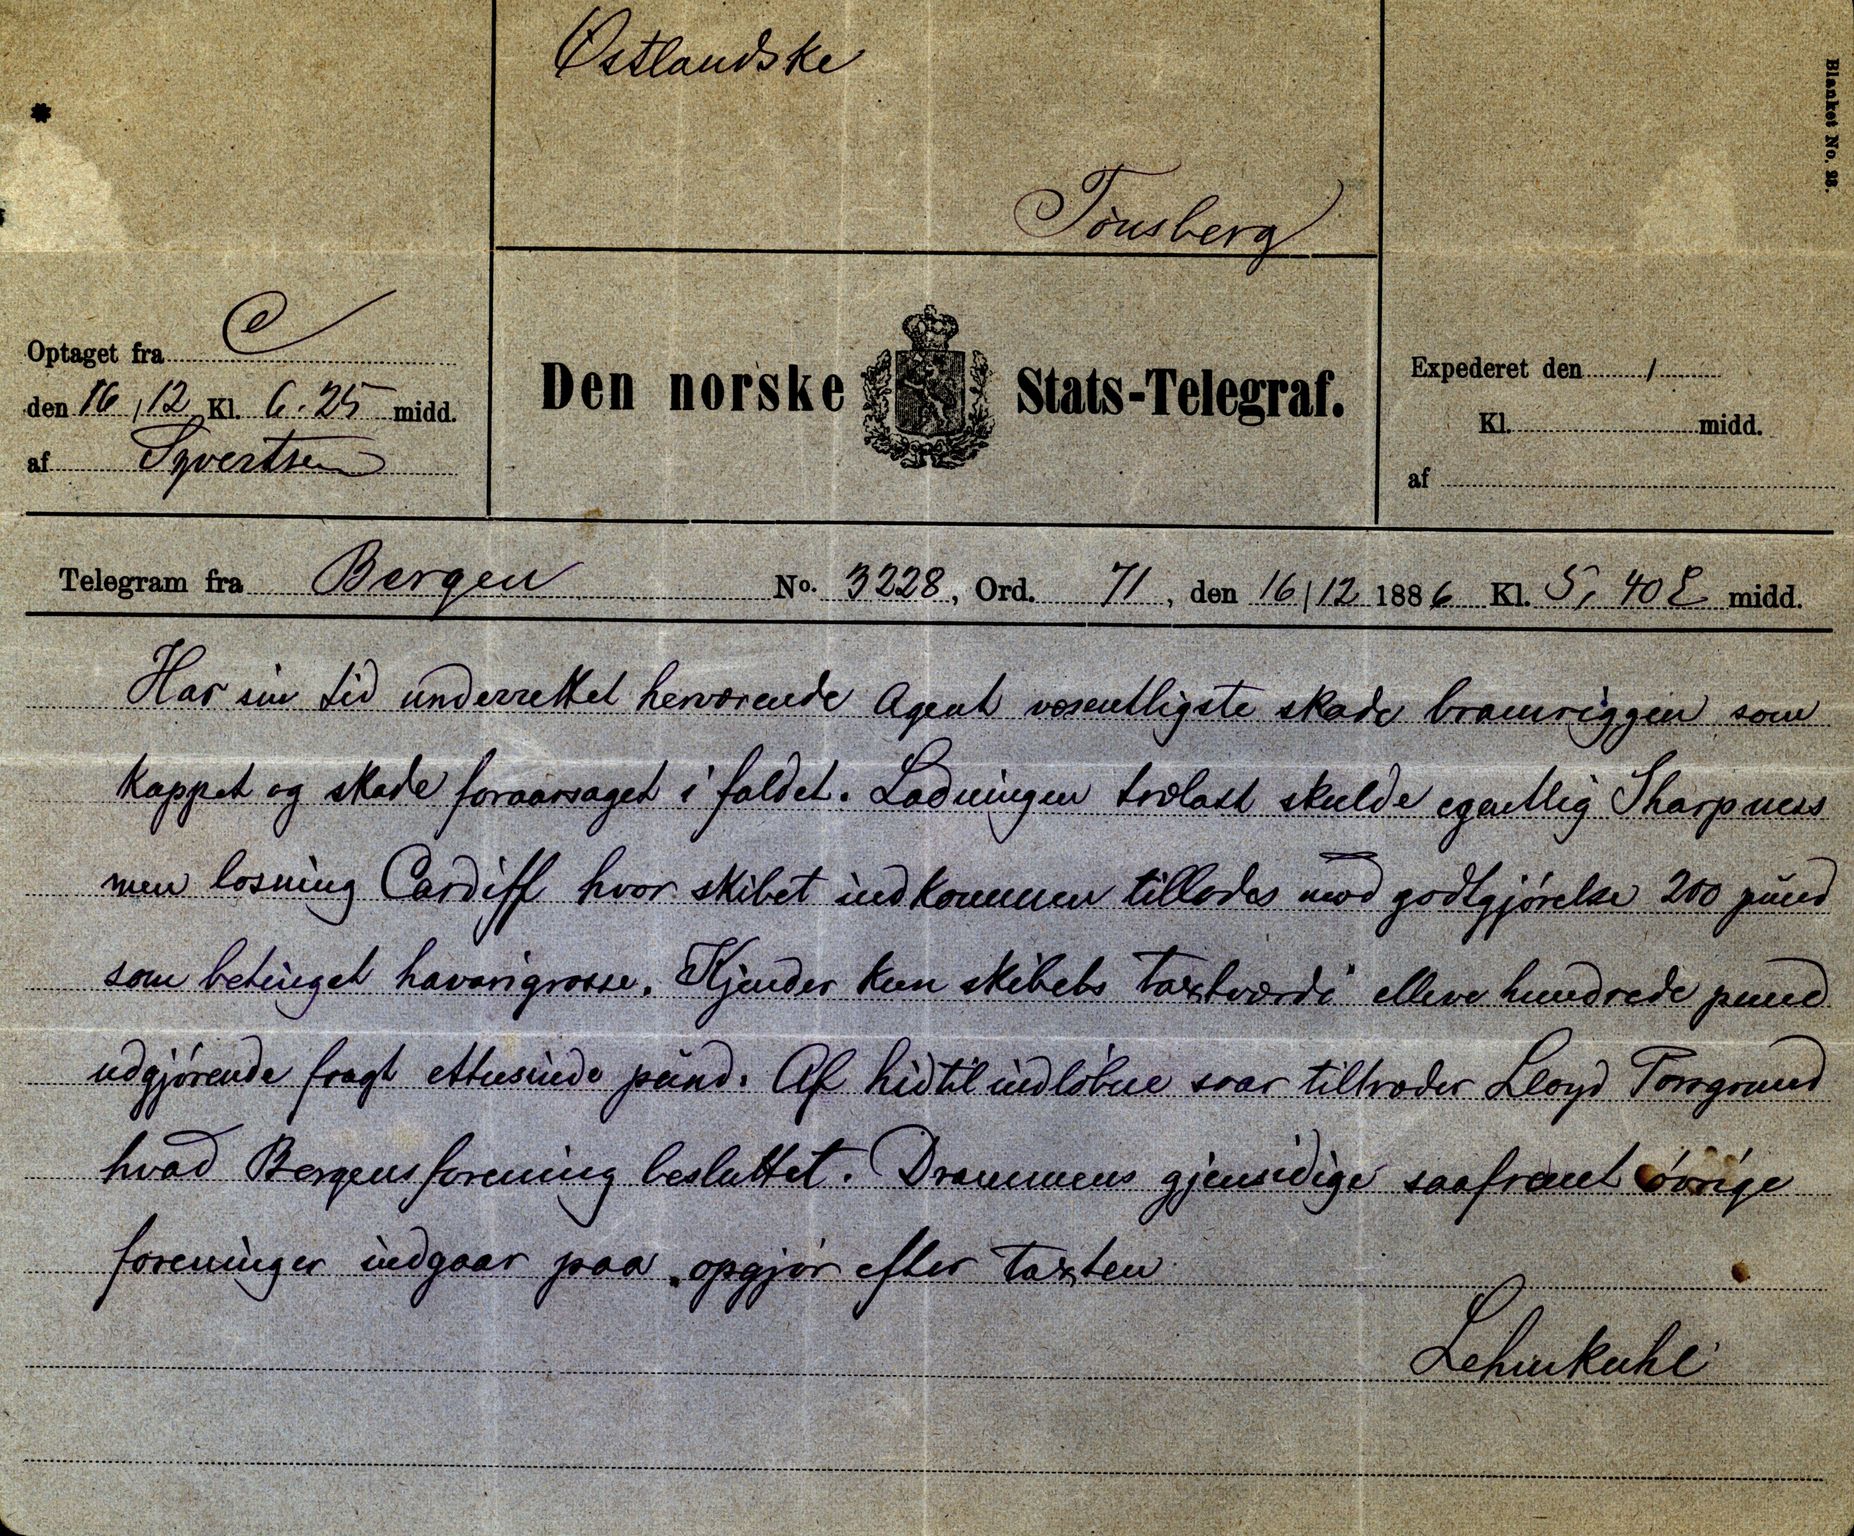 Østlandske
Tönsberg
Blanket No. 23.
Optaget fra C
den 16/12 Kl. 6.25 midd.
af Syvertsen
Den norske Stats-Telegraf.
Expederet den / 
Kl. midd.
af
Telegram fra Bergen No. 3228, Ord. 71, den 16/12 1886 Kl. 5,40 E midd.
Har sin tid underrettet herværende Agent væsentligste skade bramriggen som
kappet og skade foraarsaget i faldet. Ladningen trælast skulde egentlig Sharpness
men losning Cardiff hvor skibet indkommen tillodes mod godtgjørelse 200 pund
som betinget havarigrosse. Kjender kun skibets taxtværdi elleve hundrede pund
udgjørende fragt ettusinde pund. Af hidtil indløbne svar tiltræder Lloyd Porsgrund
hvad Bergens forening besluttet. Drammens gjensidige saafremt øvrige
foreninger indgaar paa opgjør efter taxten
Lehmkuhl